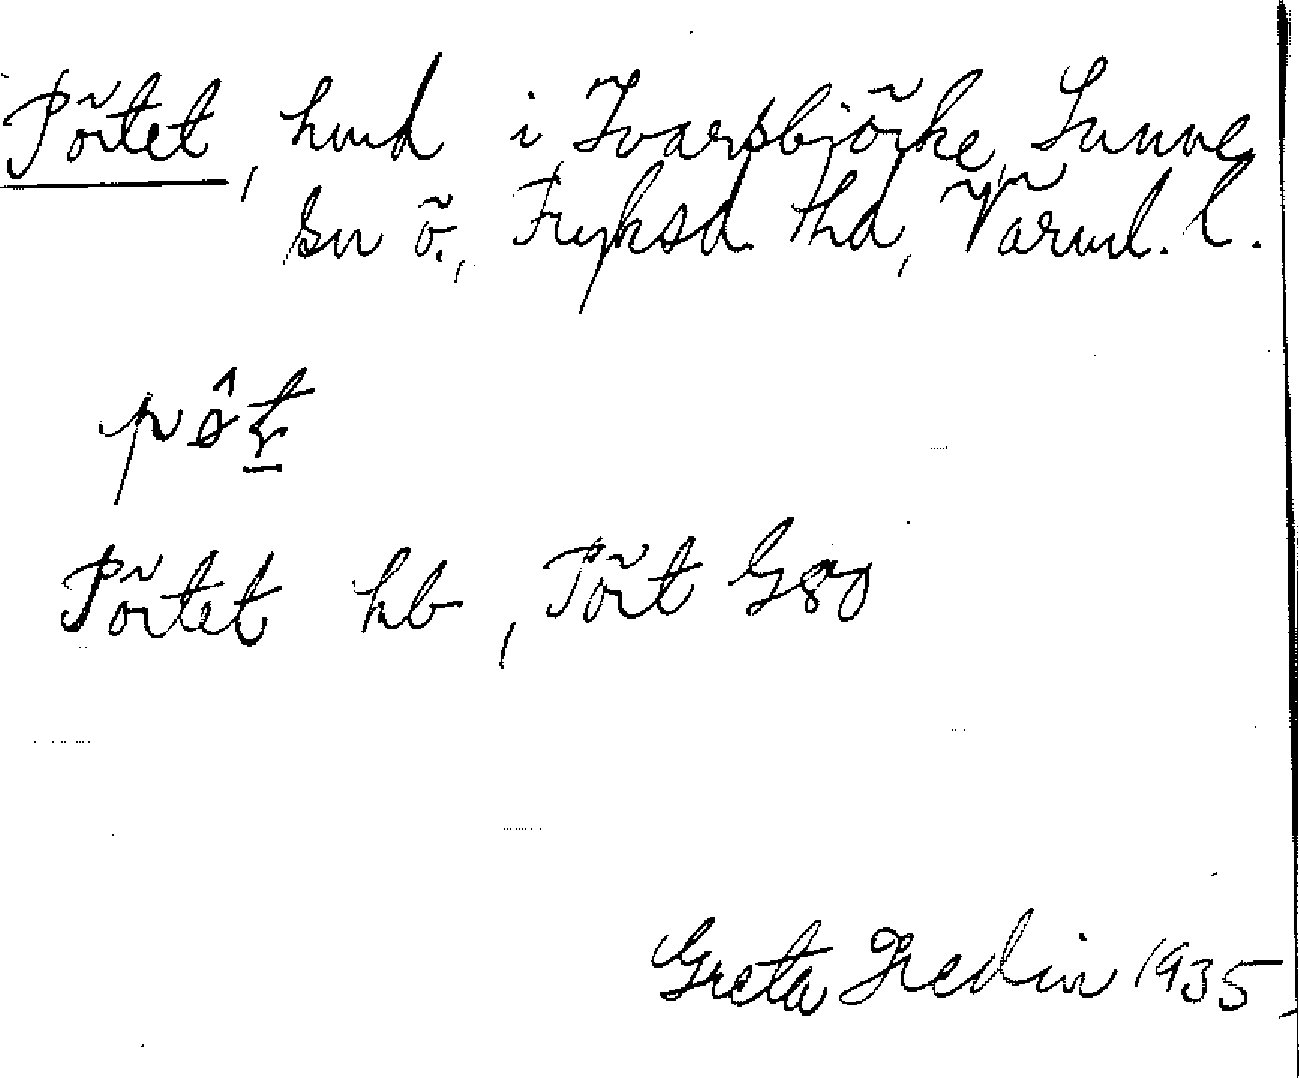 Pörtet, hmd i Ivarsbjörke, Sunne
sn ö., Fryksd. thd, Värml. l.
Pörtet hb, Pört G80
Greta Hedin 1935.